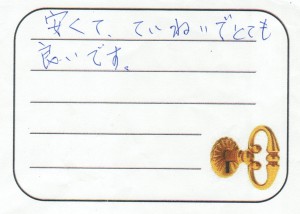 安くて、ていねいでとても
良いです。